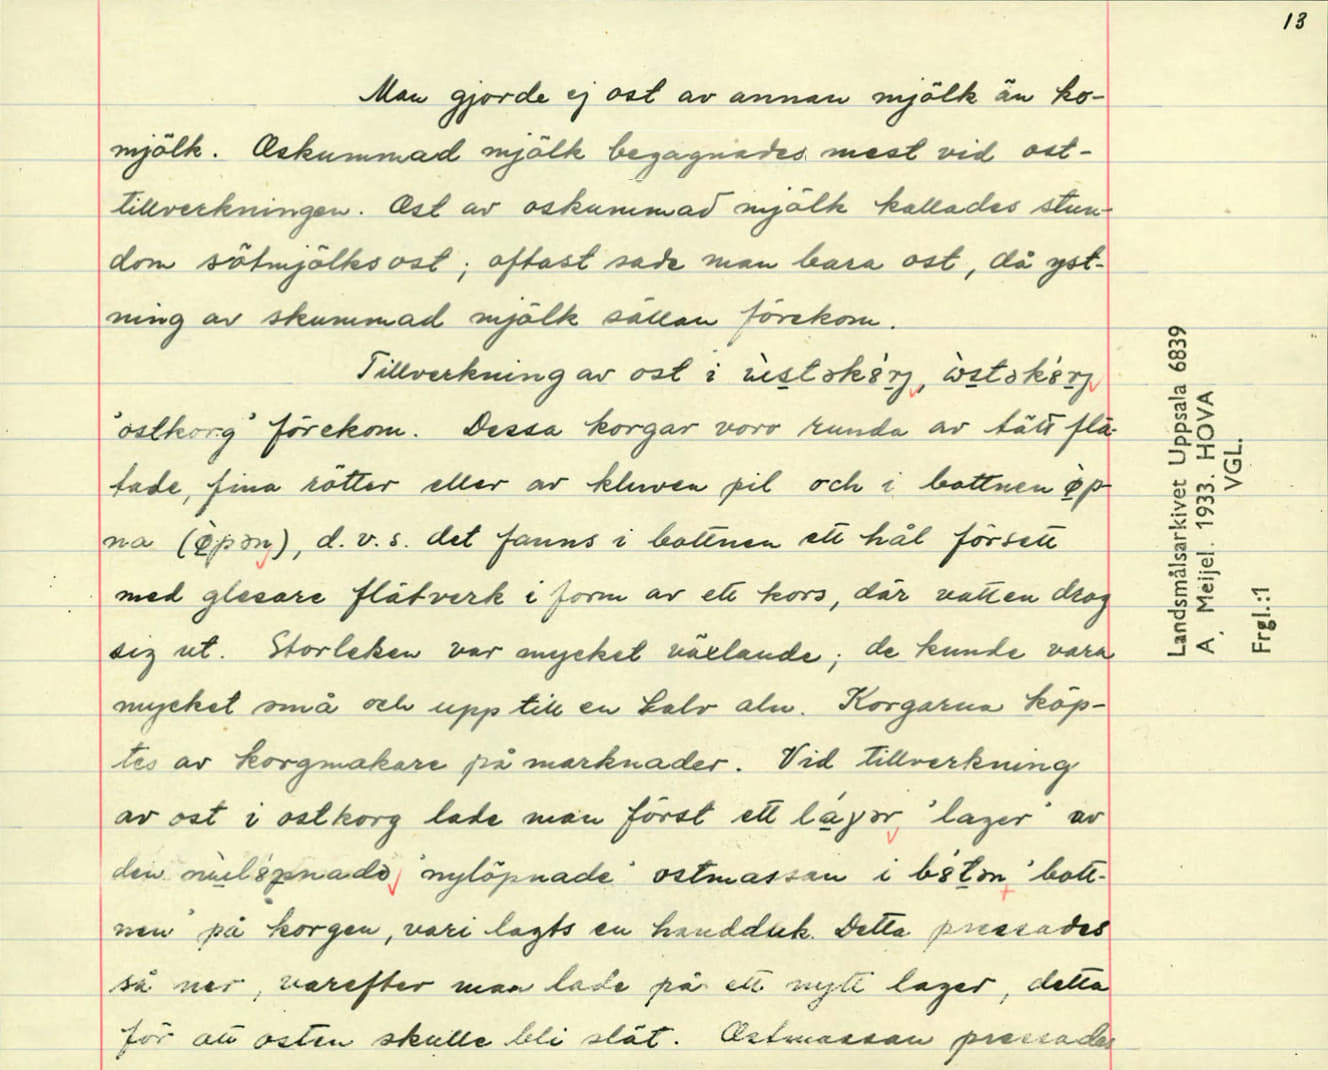 13
Man gjorde ej ost av annan mjölk än ko-
mjölk. Oskummad mjölk begagnades mest vid ost-
tillverkningen. Ost av oskummad mjölk kallades stun-
dom sötmjölksost; oftast sade man bara ost, då yst-
ning av skummad mjölk sällan förekom.
Tillverkning av ost i
'ostkorg' förekom. Dessa korgar voro runda av tätt flä-
tade, fina rötter eller av kluven pil och i bottnen öp-
na (öpən), d.v.s. det fanns i bottnen ett hål försett
med glesare flätverk i form av ett kors, där vatten drog
sig ut. Storleken var mycket växlande; de kunde vara
mycket små och upp till en halv aln. Korgarna köp-
tes av korgmakare på marknader. Vid tillverkning
av ost i ostkorg lade man först ett lágər 'lager' av
den 'nylöpnade' ostmassan i 'bott-
nen' på korgen, vari lagts en handduk. Detta pressades
så ner, varefter man lade på ett nytt lager, detta
för att osten skulle bli slät. Ostmassan pressades
Landsmålsarkivet Uppsala 6839
A. Meijel. 1933. HOVA
VGL.
Frgl.:1